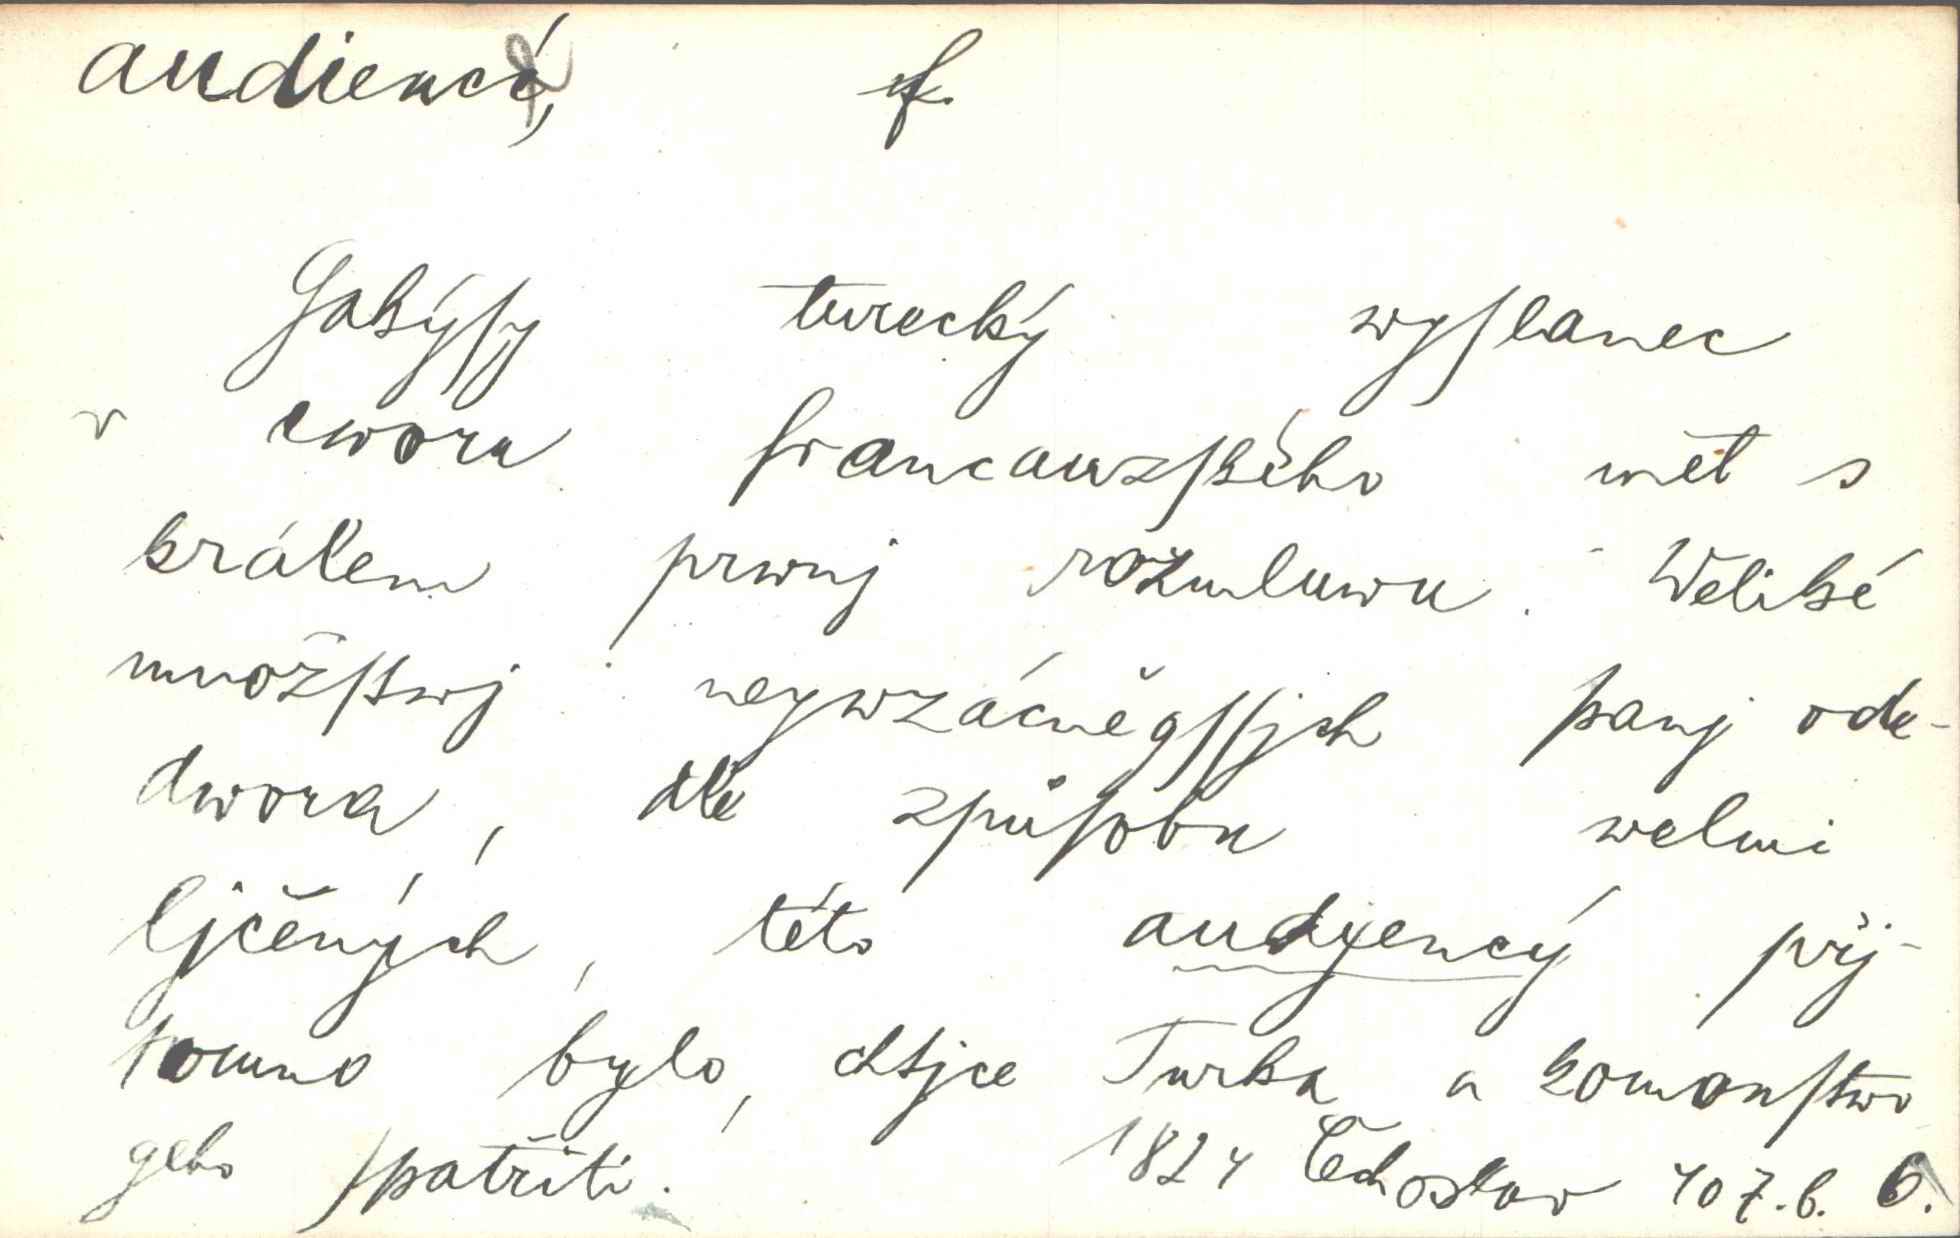 audiencí, f.
Gakýſy turecký wyſlanec
v dwora francauzſkého měl s
králem prwnj rozmluwu. Weliké
množſtwj neywzácněgſſjch panj ode-
dwora, dle způſobu welmi
ljčených, této audyencý přj-
tomno bylo, chtjce Turka a komonſtwo
geho ſpatřiti. 1824 Čechoslav 407.b. 6.